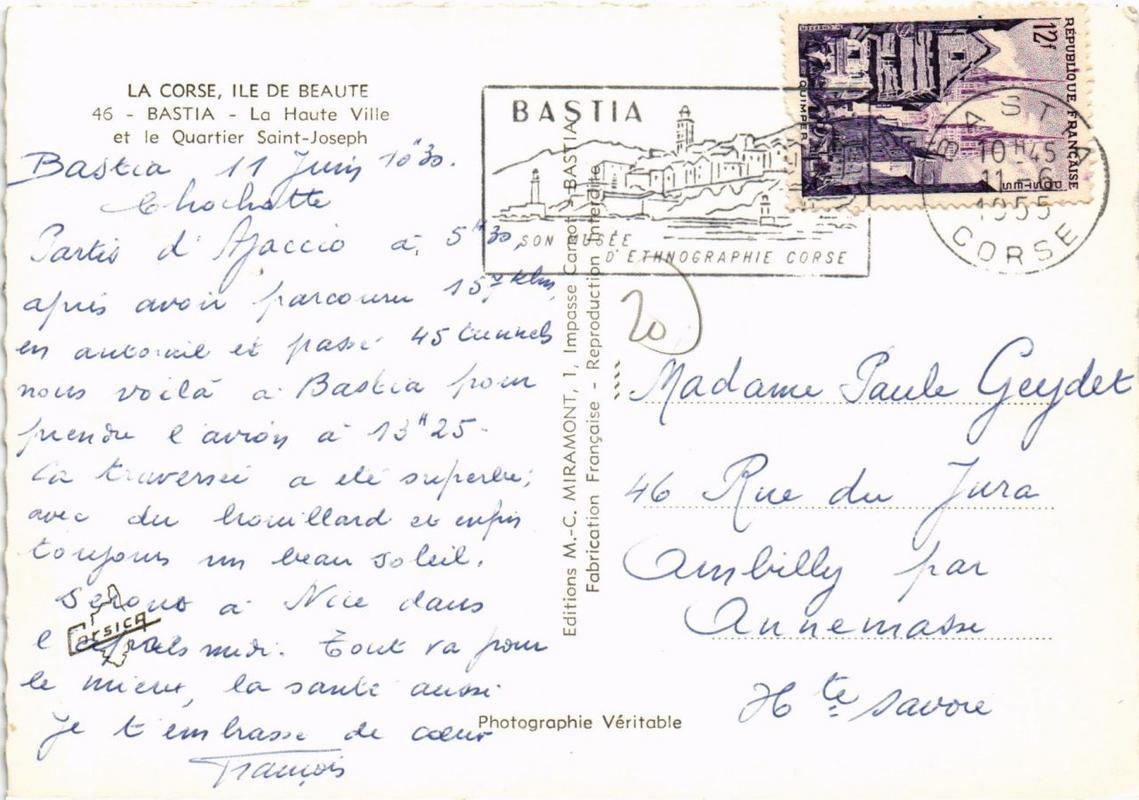 LA CORSE, ILE DE BEAUTE
46 - BASTIA - La Haute Ville
et le Quartier Saint-Joseph
Bastia 11 Juin 10h30.
Chochotte
Partis d'Ajaccio à 5H30,
après avoir parcouru 157 klm
en autorail et passé 45 tunnels
nous voilà à Bastia pour
prendre l'avion à 13H25.
La traversée a été superbe,
avec du brouillard et enfin
toujours un beau soleil.
Serons à Nice dans
l'après midi. Tout va pour
le mieux, la santé aussi
Je t'embrasse de cœur
François
Corsica
Editions M.-C. MIRAMONT, 1, Impasse Carnot - BASTIA
Fabrication Française - Reproduction Interdite
Photographie Véritable
BASTIA
SON MUSÉE
D'ETHNOGRAPHIE CORSE
RÉPUBLIQUE FRANÇAISE
12f
POSTES
QUIMPER
BASTIA
10H45
11-6
1955
CORSE
20
Madame Paule Geydet
46 Rue du Jura
Ambilly par
Annemasse
Hte Savoie